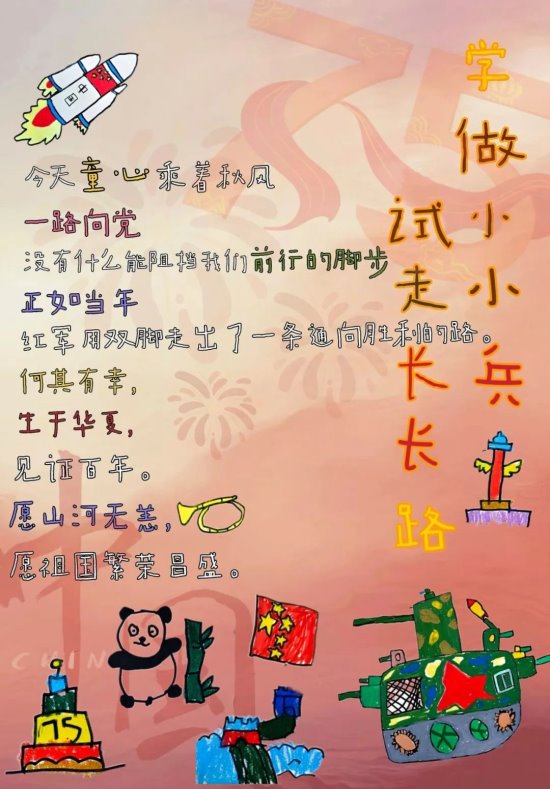 学做小小兵
试走长长路
中国
今天童心乘着秋风
一路向党
没有什么能阻挡我们前行的脚步
正如当年
红军用双脚走出了一条通向胜利的路。
何其有幸，
生于华夏，
见证百年。
愿山河无恙，
愿祖国繁荣昌盛。
中国
CHIN
75
75